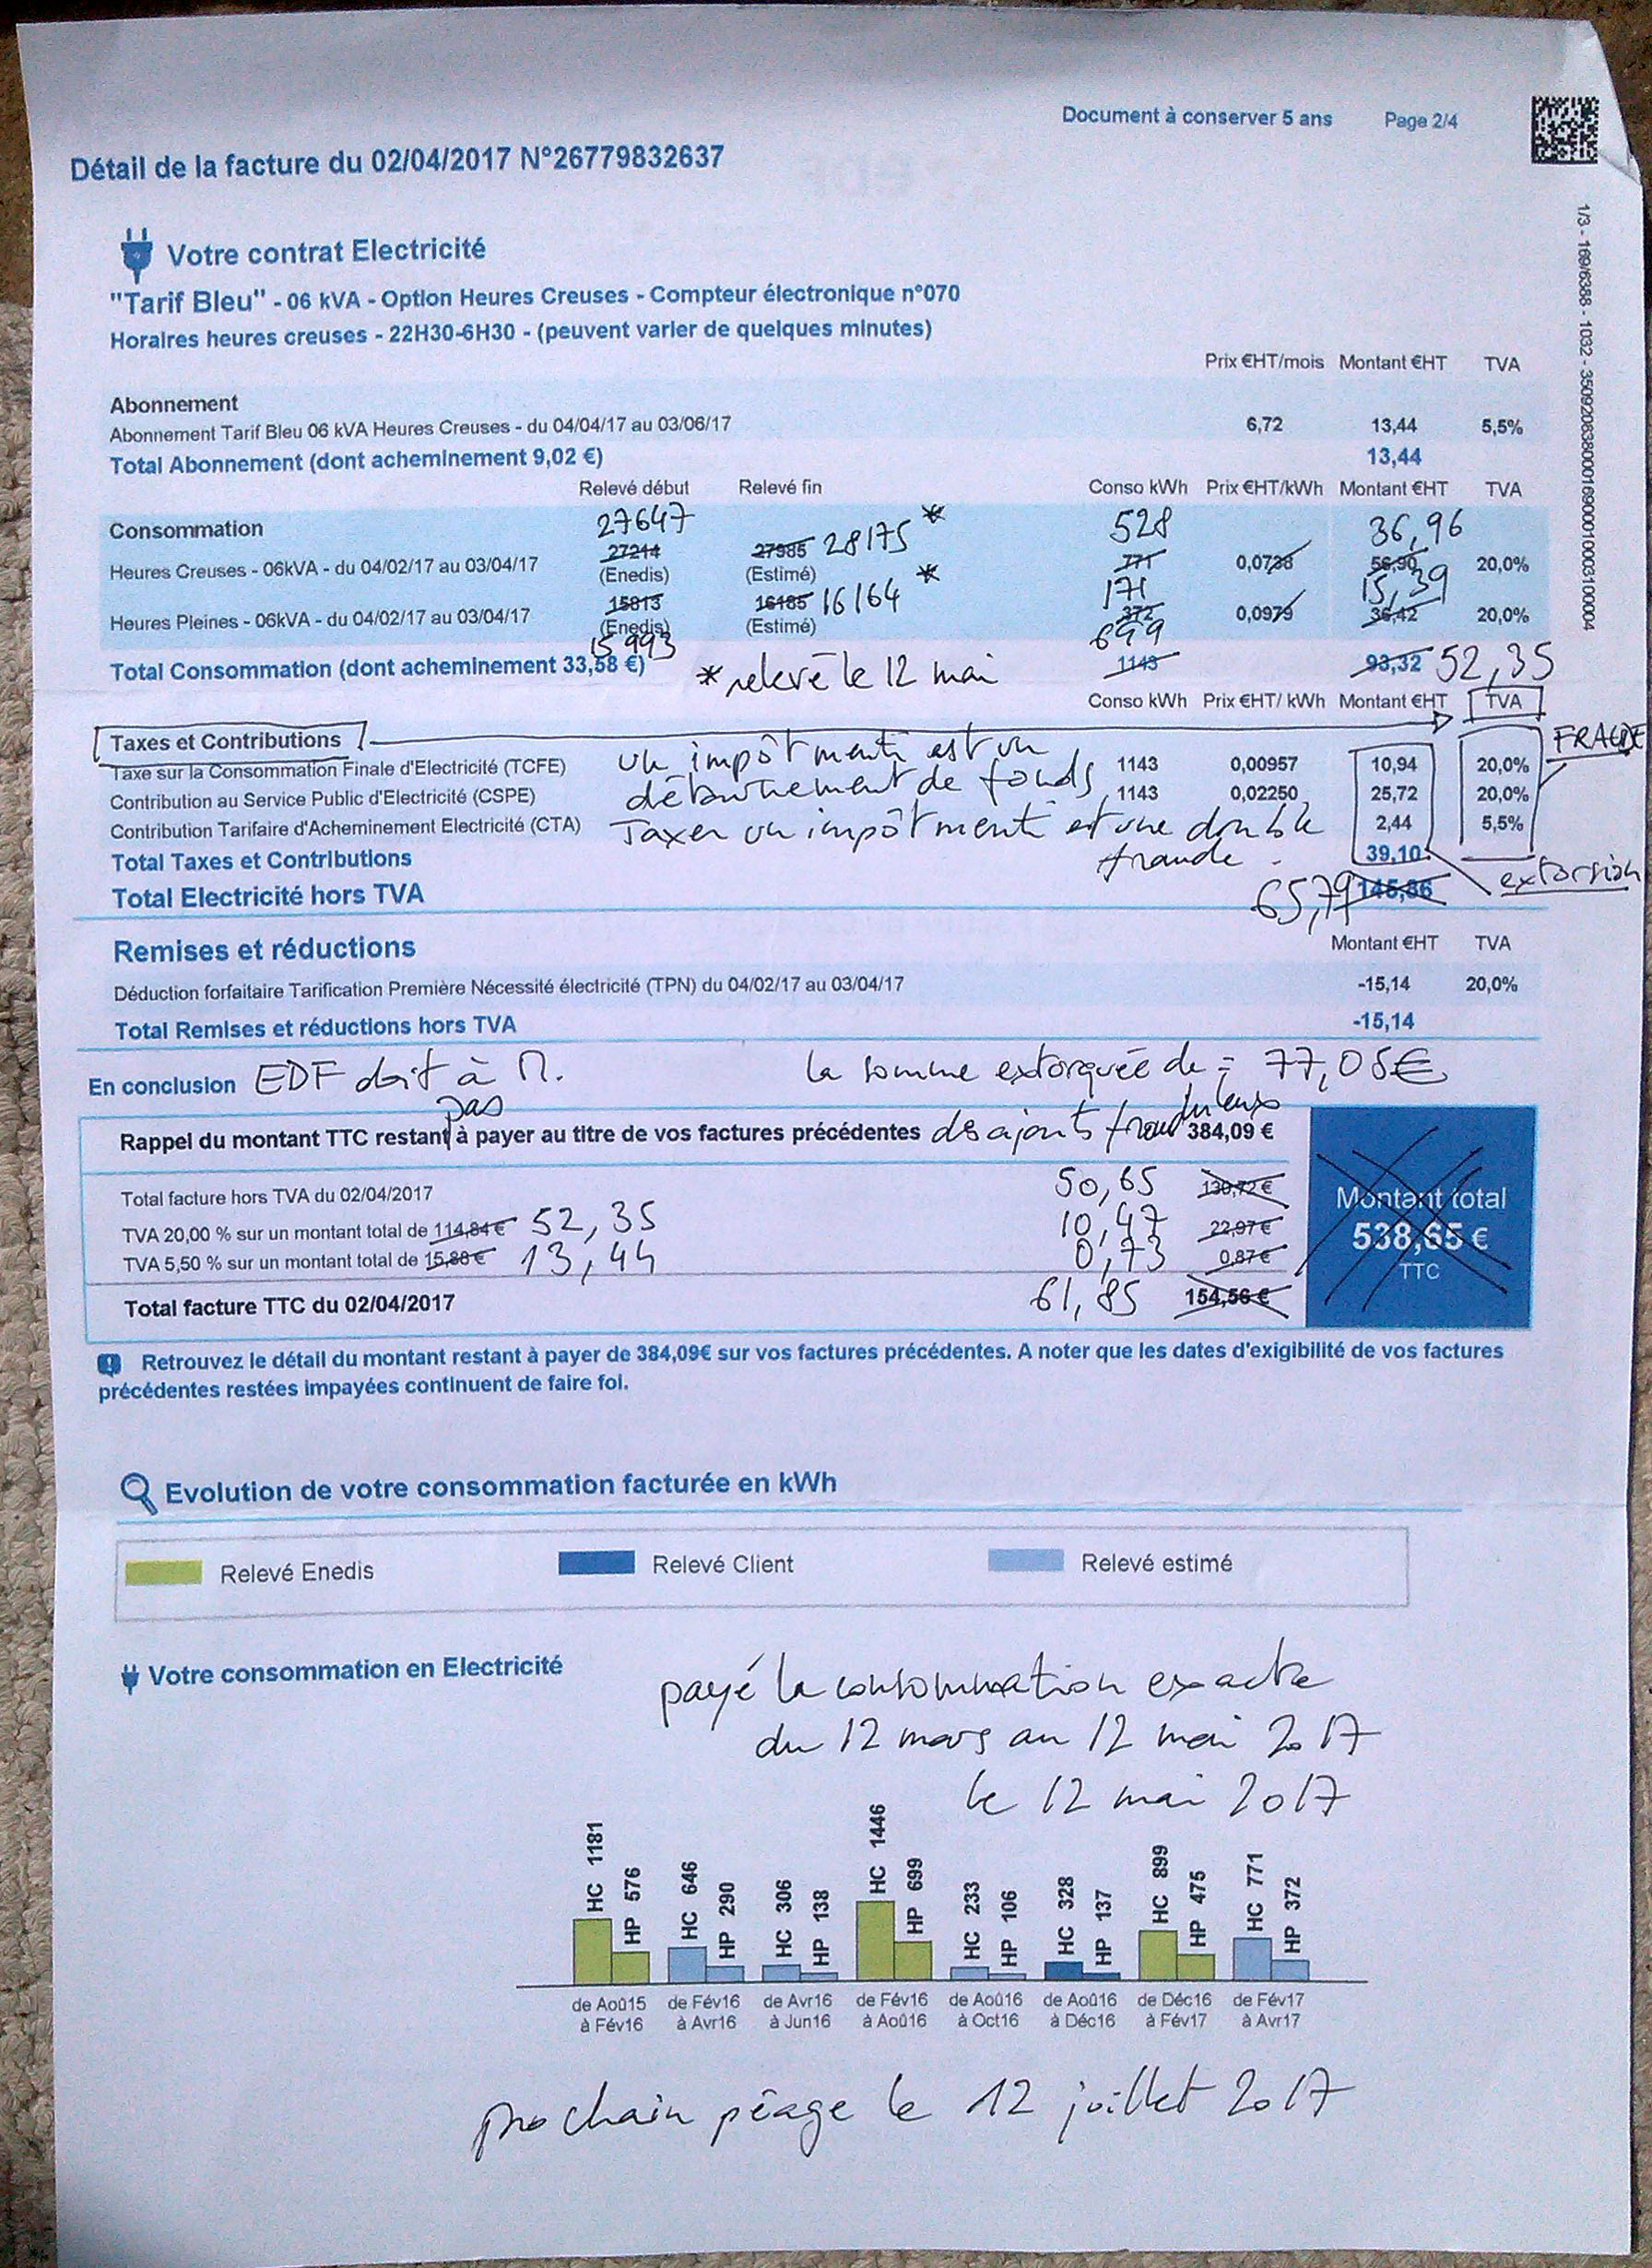 Document à conserver 5 ans Page 2/4
Détail de la facture du 02/04/2017 N°26779832637
1/3 - 169/6388 - 1032 -
Votre contrat Electricité
"Tarif Bleu" - 06 kVA - Option Heures Creuses - Compteur électronique n°070
Horaires heures creuses - 22H30-6H30 - (peuvent varier de quelques minutes)
Prix €HT/mois Montant €HT TVA
Abonnement
Abonnement Tarif Bleu 06 kVA Heures Creuses - du 04/04/17 au 03/06/17 6,72 13,44 5,5%
Total Abonnement (dont acheminement 9,02 €) 13,44
Relevé début Relevé fin Conso kWh Prix €HT/kWh Montant €HT TVA
Consommation 27647 28175 * 528 36,96
Heures Creuses - 06kVA - du 04/02/17 au 03/04/17 27214 27985 771 0,0738 56,90 20,0%
(Enedis) (Estimé)
16164 * 171 15,39
Heures Pleines - 06kVA - du 04/02/17 au 03/04/17 15813 16185 372 0,0979 36,42 20,0%
(Enedis) (Estimé)
15993 699
Total Consommation (dont acheminement 33,58 €) * relevé le 12 mai 1143 93,32 52,35
Conso kWh Prix €HT/ kWh Montant €HT TVA
Taxes et Contributions un impôt menti est un FRAUDE
Taxe sur la Consommation Finale d'Electricité (TCFE) 1143 0,00957 10,94 20,0%
détournement de fonds
Contribution au Service Public d'Electricité (CSPE) 1143 0,02250 25,72 20,0%
Contribution Tarifaire d'Acheminement Electricité (CTA) Taxer un impôt menti est une double 2,44 5,5%
Total Taxes et Contributions fraude. 39,10
extorsion
Total Electricité hors TVA 65,79 145,86
Remises et réductions Montant €HT TVA
Déduction forfaitaire Tarification Première Nécessité électricité (TPN) du 04/02/17 au 03/04/17 -15,14 20,0%
Total Remises et réductions hors TVA -15,14
En conclusion EDF doit à M. la somme extorquée de = 77,05€
pas
Rappel du montant TTC restant à payer au titre de vos factures précédentes des ajouts frauduleux 384,09 €
Total facture hors TVA du 02/04/2017 50,65 130,72 €
TVA 20,00 % sur un montant total de 114,84 € 52,35 10,47 22,97 €
TVA 5,50 % sur un montant total de 15,88 € 13,44 0,73 0,87 €
Total facture TTC du 02/04/2017 61,85 154,56 €
Montant total
538,65 €
TTC
Retrouvez le détail du montant restant à payer de 384,09€ sur vos factures précédentes. A noter que les dates d'exigibilité de vos factures
précédentes restées impayées continuent de faire foi.
Evolution de votre consommation facturée en kWh
Relevé Enedis Relevé Client Relevé estimé
Votre consommation en Electricité
payé la consommation exacte
du 12 mars au 12 mai 2017
le 12 mai 2017
HC 1181 HP 576 HC 646 HP 290 HC 306 HP 138 HC 1446 HP 699 HC 233 HP 106 HC 328 HP 137 HC 899 HP 475 HC 771 HP 372
de Aoû15 de Fév16 de Avr16 de Fév16 de Aoû16 de Aoû16 de Déc16 de Fév17
à Fév16 à Avr16 à Jun16 à Aoû16 à Oct16 à Déc16 à Fév17 à Avr17
prochain péage le 12 juillet 2017